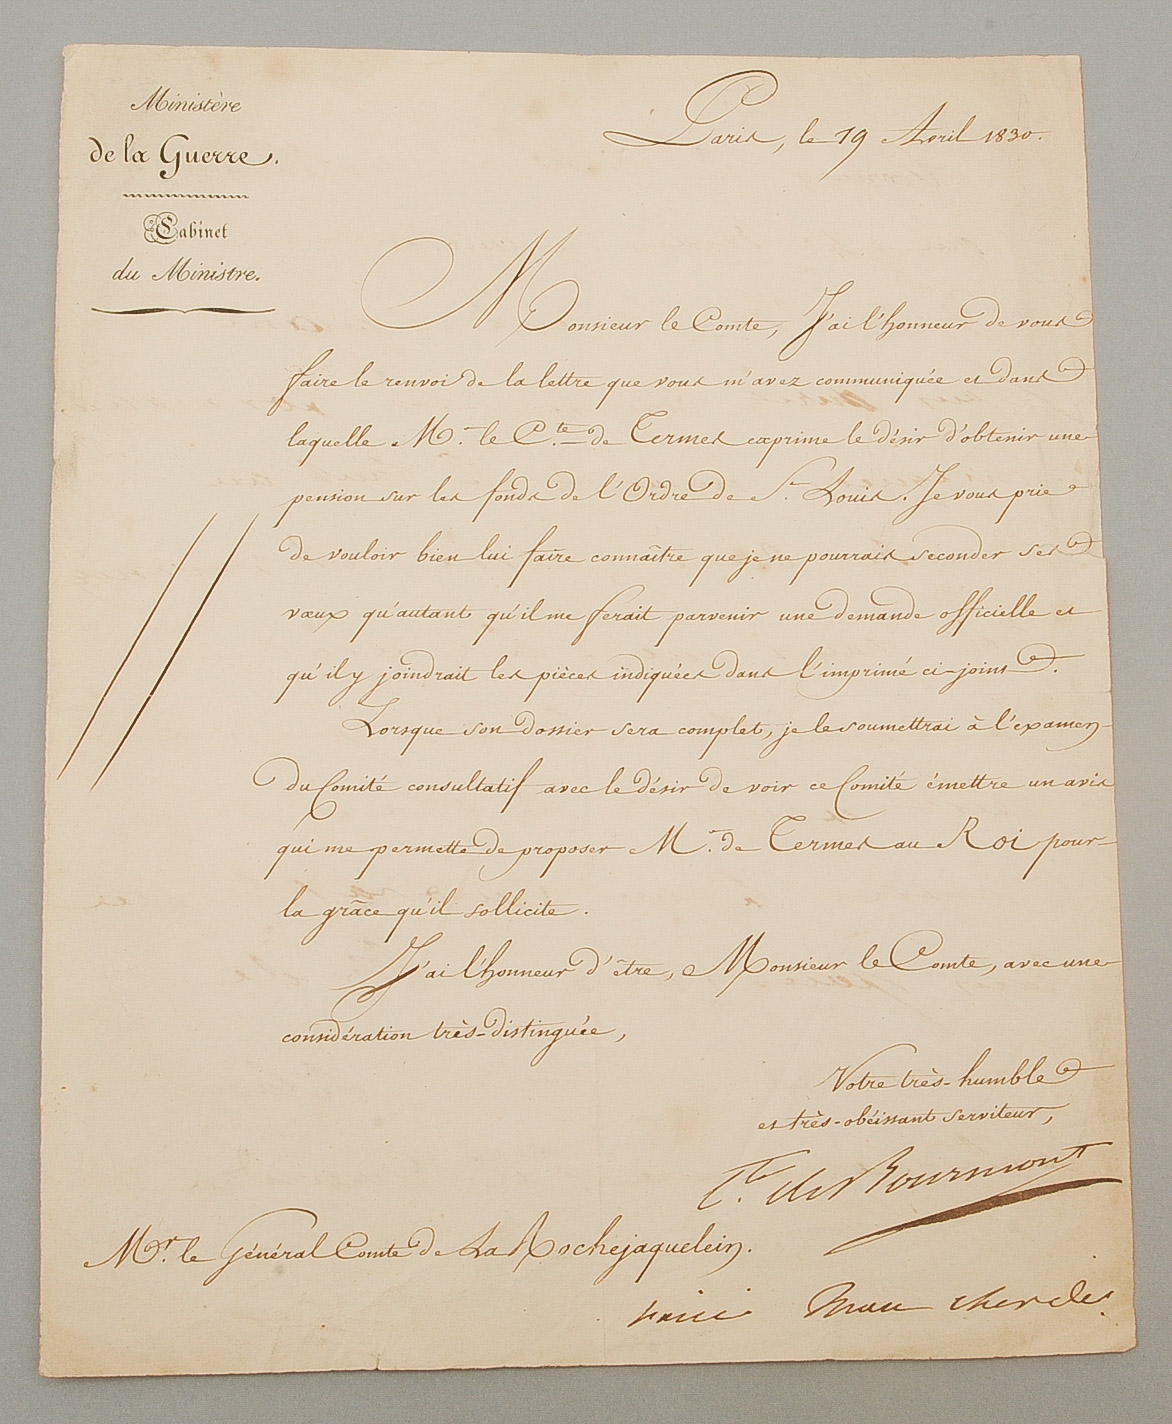 Ministère
de la Guerre.
Cabinet
du Ministre.
Paris, le 19 Avril 1830.
Monsieur le Comte, J'ai l'honneur de vous
faire le renvoi de la lettre que vous m'avez communiquée et dans
laquelle M.r le C.te de Termes exprime le désir d'obtenir une
pension sur les fonds de l'Ordre de S.t Louis. Je vous prie
de vouloir bien lui faire connaître que je ne pourrais seconder ses
vœux qu'autant qu'il me ferait parvenir une demande officielle et
qu'il y joindrait les pièces indiquées dans l'imprimé ci-joint.
Lorsque son dossier sera complet, je le soumettrai à l'examen
du Comité consultatif avec le désir de voir ce Comité émettre un avis
qui me permette de proposer M.r de Termes au Roi pour
la grâce qu'il sollicite.
J'ai l'honneur d'être, Monsieur le Comte, avec une
considération très-distinguée,
Votre très-humble
et très-obéissant serviteur,
C.te de Bourmont
M.r le Général Comte de La Rochejaquelein.
voici mon cher